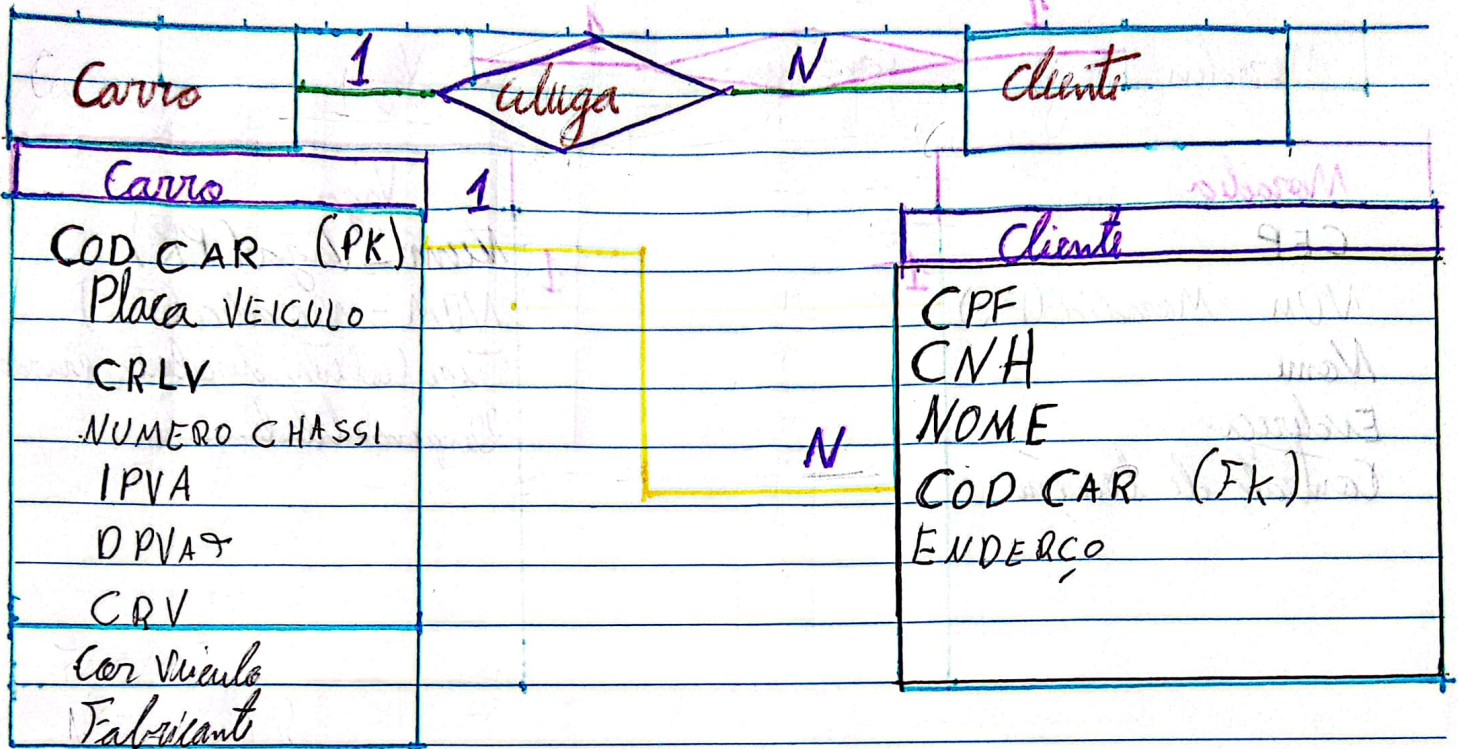 Carro 1 aluga N Cliente
Carro 1
COD CAR (PK)
Placa VEICULO
CRLV
NUMERO CHASSI
IPVA
DPVAT
CRV
Cor Veiculo
Fabricante
Cliente
CPF
CNH
NOME
N COD CAR (FK)
ENDERÇO